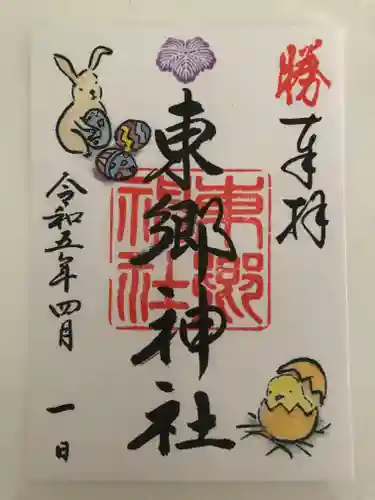 勝
奉拝
東郷神社
東郷
神社
令和五年四月一日